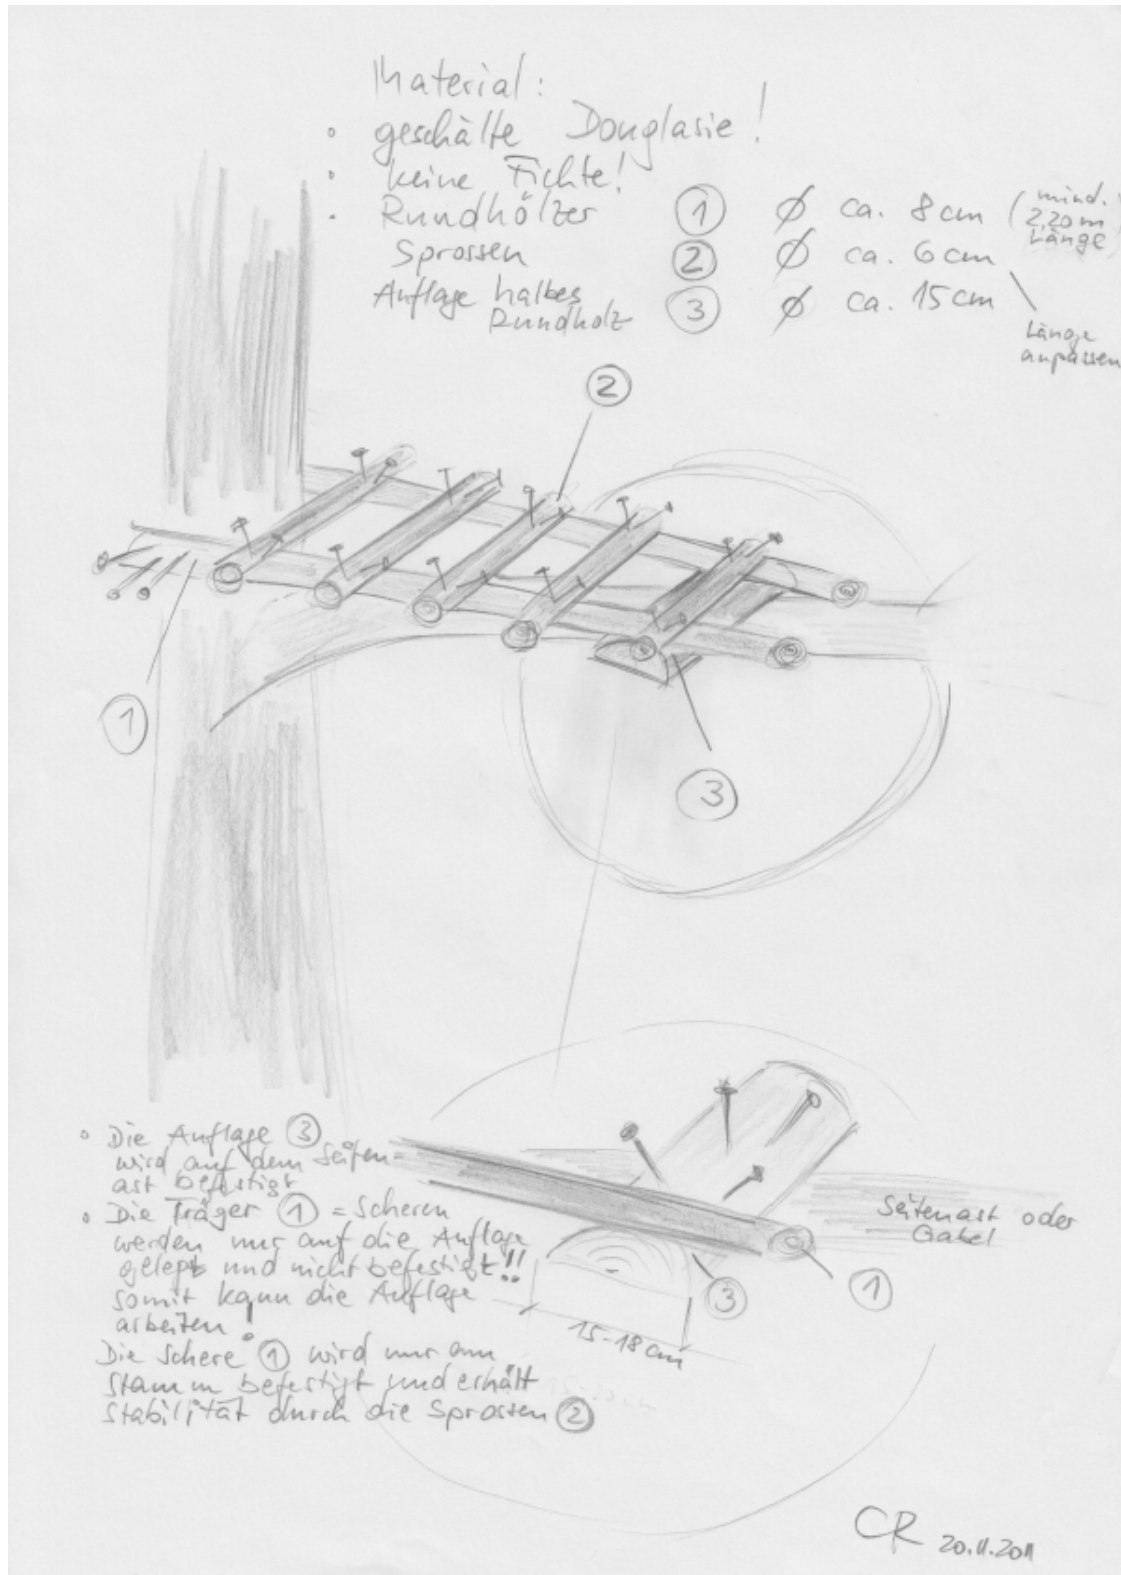 Material:
◦ geschälte Douglasie!
◦ keine Fichte!
· Rundhölzer ① Ø ca. 8 cm (mind. 2,20 m Länge)
Sprossen ② Ø ca. 6 cm
Auflage halbes Rundholz ③ Ø ca. 15 cm
Länge
anpassen
②
①
③
◦ Die Auflage ③
wird auf dem Seiten-
ast befestigt
◦ Die Träger ① = Scheren
werden nur auf die Auflage
gelegt und nicht befestigt!!
somit kann die Auflage
arbeiten!
Die Schere ① wird nur am
Stamm befestigt und erhält
Stabilität durch die Sprossen ②
Seitenast oder
Gabel
③
①
15-18 cm
CR 20.11.2011